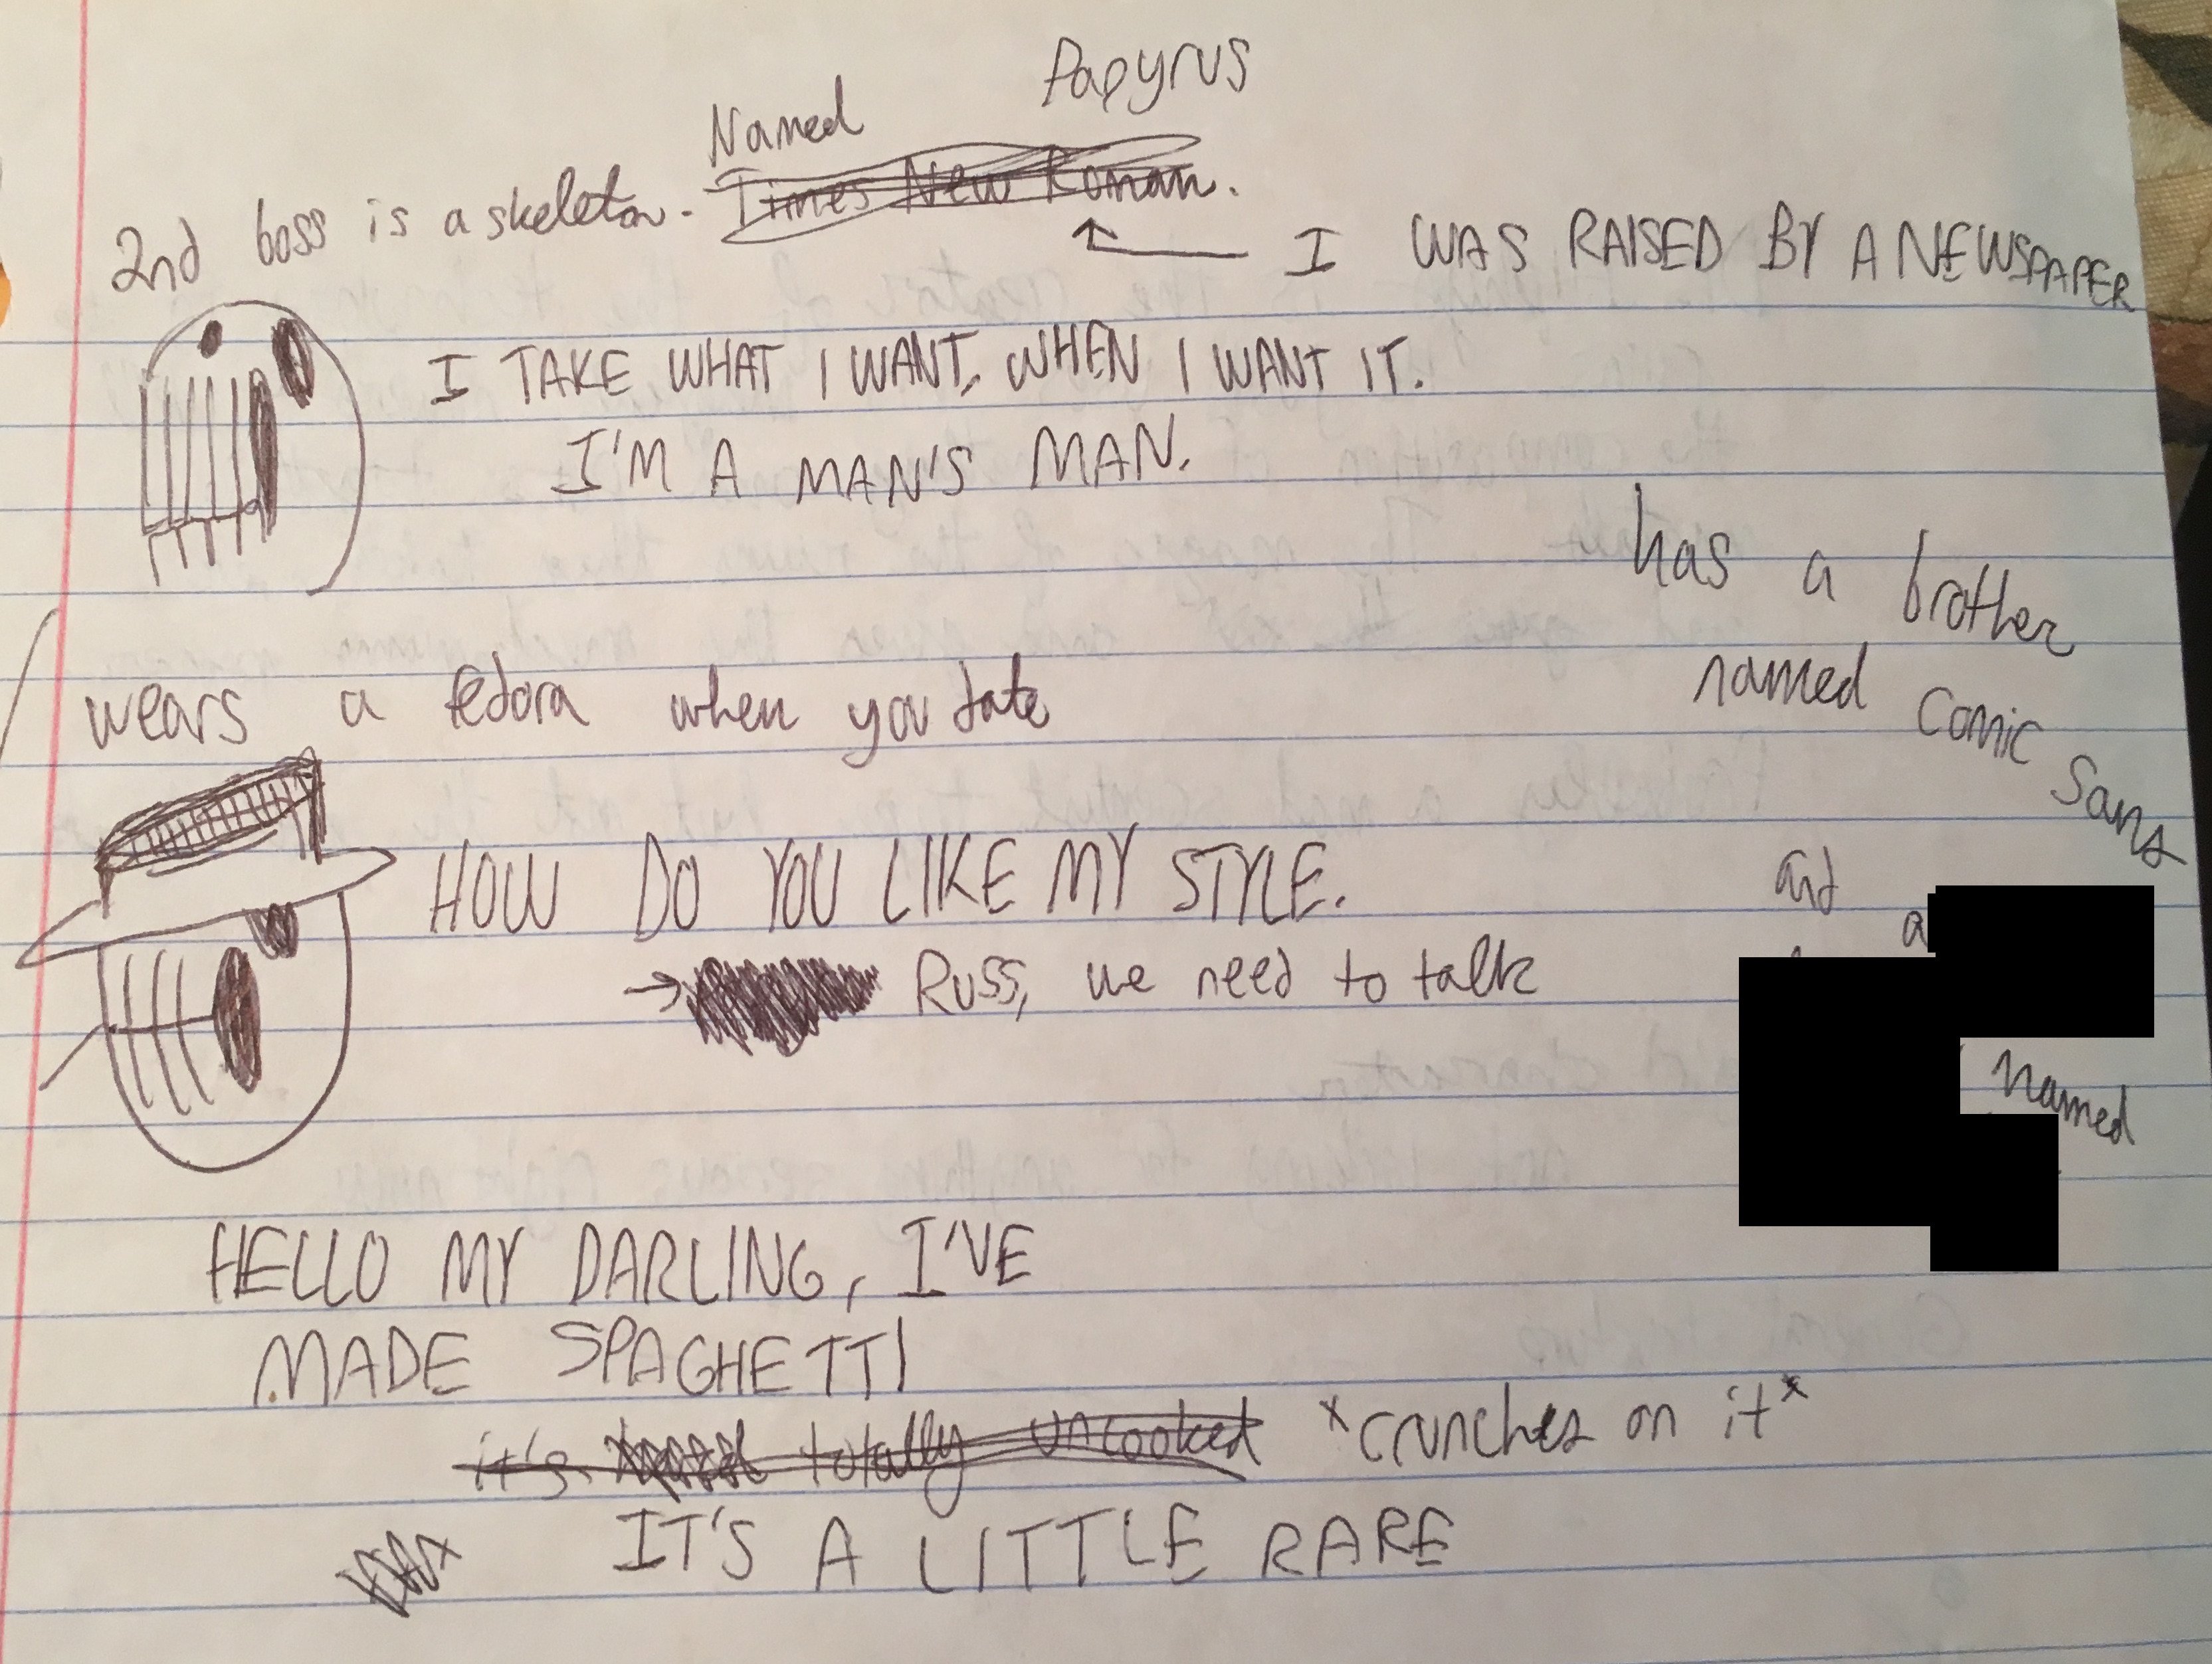 2nd boss is a skeleton. Named Papyrus
Times New Roman.
I WAS RAISED BY A NEWSPAPER
I TAKE WHAT I WANT, WHEN I WANT IT.
I'M A MAN'S MAN.
has a brother
named Comic Sans
and a
named
wears a fedora when you date
HOW DO YOU LIKE MY STYLE.
→ Russ, we need to talk
HELLO MY DARLING, I'VE
MADE SPAGHETTI
it's totally uncooked *crunches on it*
IT'S A LITTLE RARE